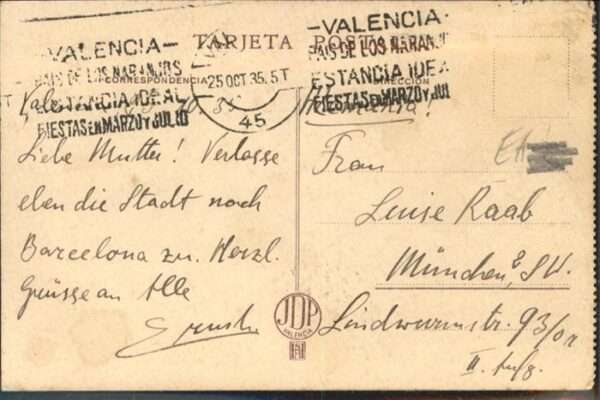 TARJETA POSTAL
CORRESPONDENCIA
DIRECCION
-VALENCIA-
PAIS DE LOS NARANJOS
ESTANCIA IDEAL
FIESTAS EN MARZO Y JULIO
25 OCT 35. 5T
45
-VALENCIA
PAIS DE LOS NARANJ
ESTANCIA IDEA
FIESTAS EN MARZO Y JUL
Liebe Mutter! Verlasse
eben die Stadt nach
Barcelona zu. Herzl.
Grüsse an Alle
Ernst
Alemania!
Frau
Luise Raab
München 2, SW.
Lindwurmstr. 93/0r
II. Aufg.
JDP
VALENCIA